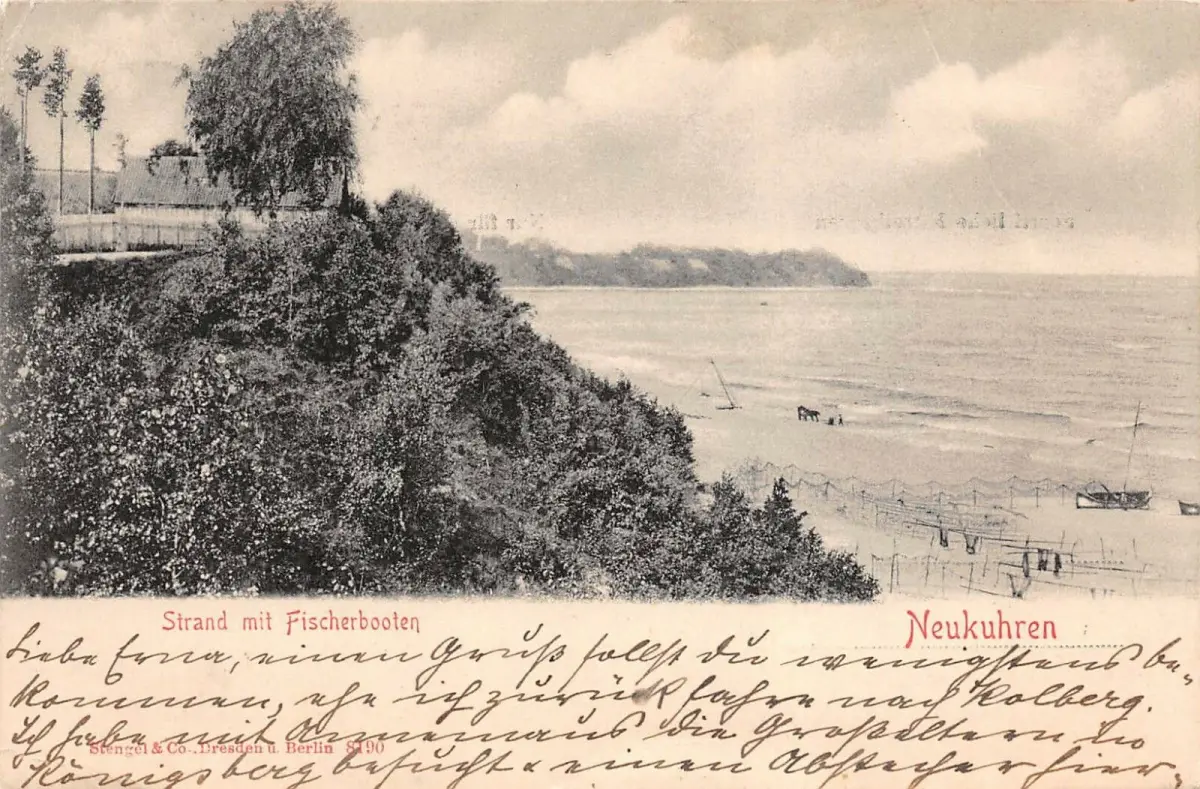 Strand mit Fischerbooten
Neukuhren
Liebe Erna, einen Gruß sollst du wenigstens be-
kommen, ehe ich zurück fahre nach Kolberg.
Ich habe mit Annemaus die Großeltern in
Stengel & Co., Dresden u. Berlin 8190
Königsberg besucht & einen Abstecher hier-